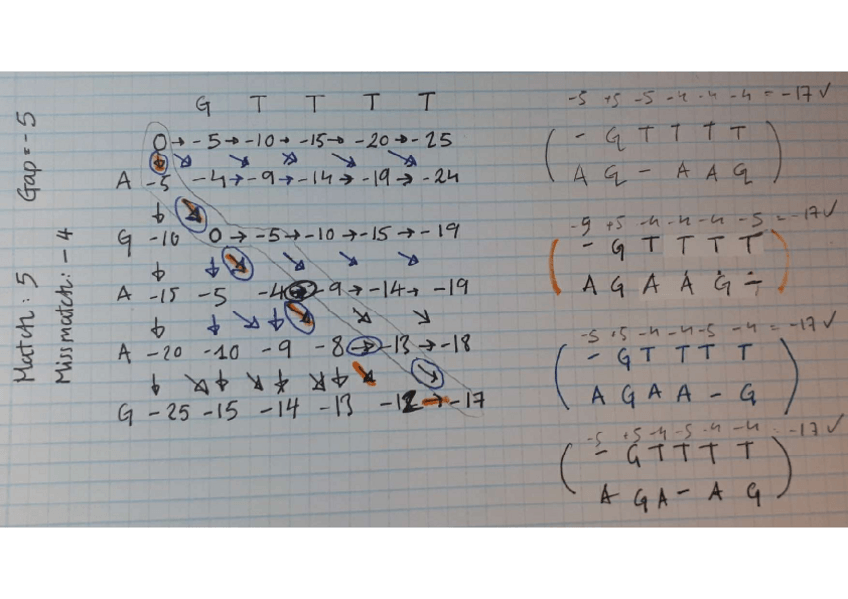 Gap = -5
Match: 5
Missmatch: -4
G T T T T
0 → -5 → -10 → -15 → -20 → -25
A -5 -4 → -9 → -14 → -19 → -24
G -10 0 → -5 → -10 → -15 → -19
A -15 -5 -4 → -9 → -14 → -19
A -20 -10 -9 -8 → -13 → -18
G -25 -15 -14 -13 -12 → -17
-5 +5 -5 -4 -4 -4 = -17 ✓
- G T T T T
A G - A A G
-9 +5 -4 -4 -4 -5 = -17 ✓
- G T T T T
A G A A G -
-5 +5 -4 -4 -5 -4 = -17 ✓
- G T T T T
A G A A - G
-5 +5 -4 -5 -4 -4 = -17 ✓
- G T T T T
A G A - A G